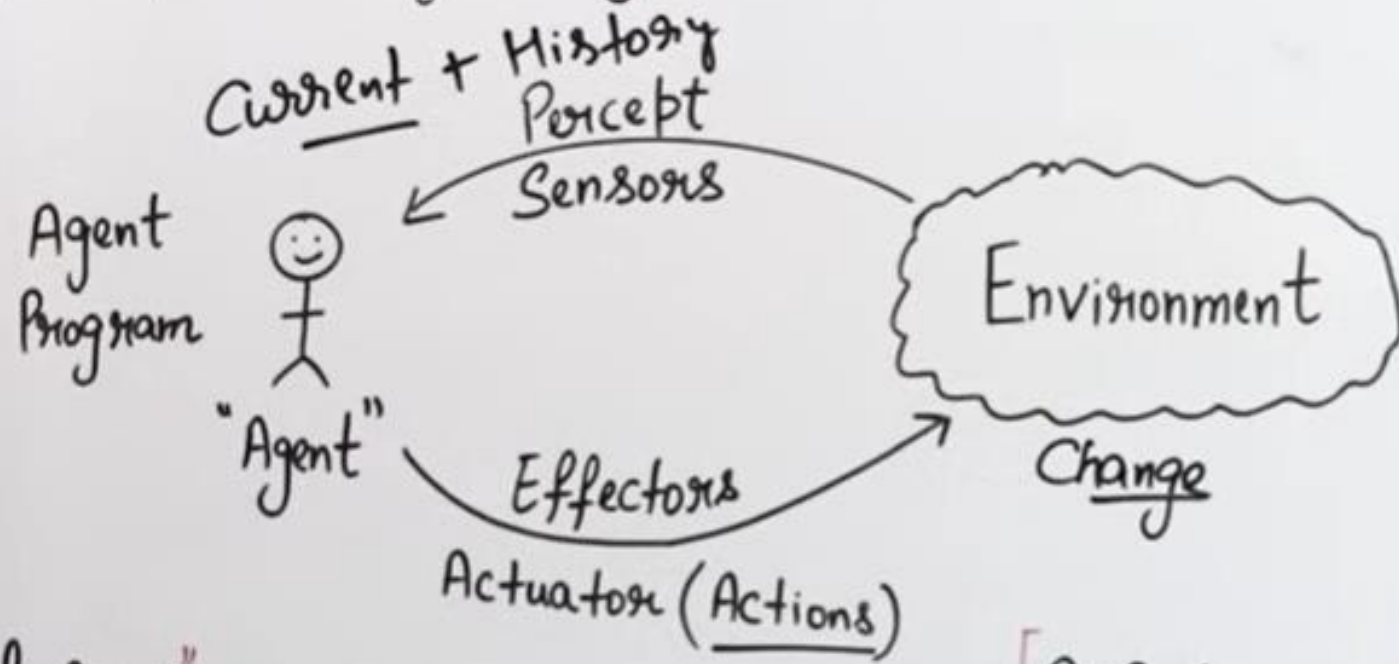 Current + History
Percept
Sensors
Agent
Program
"Agent"
Environment
Change
Effectors
Actuator (Actions)